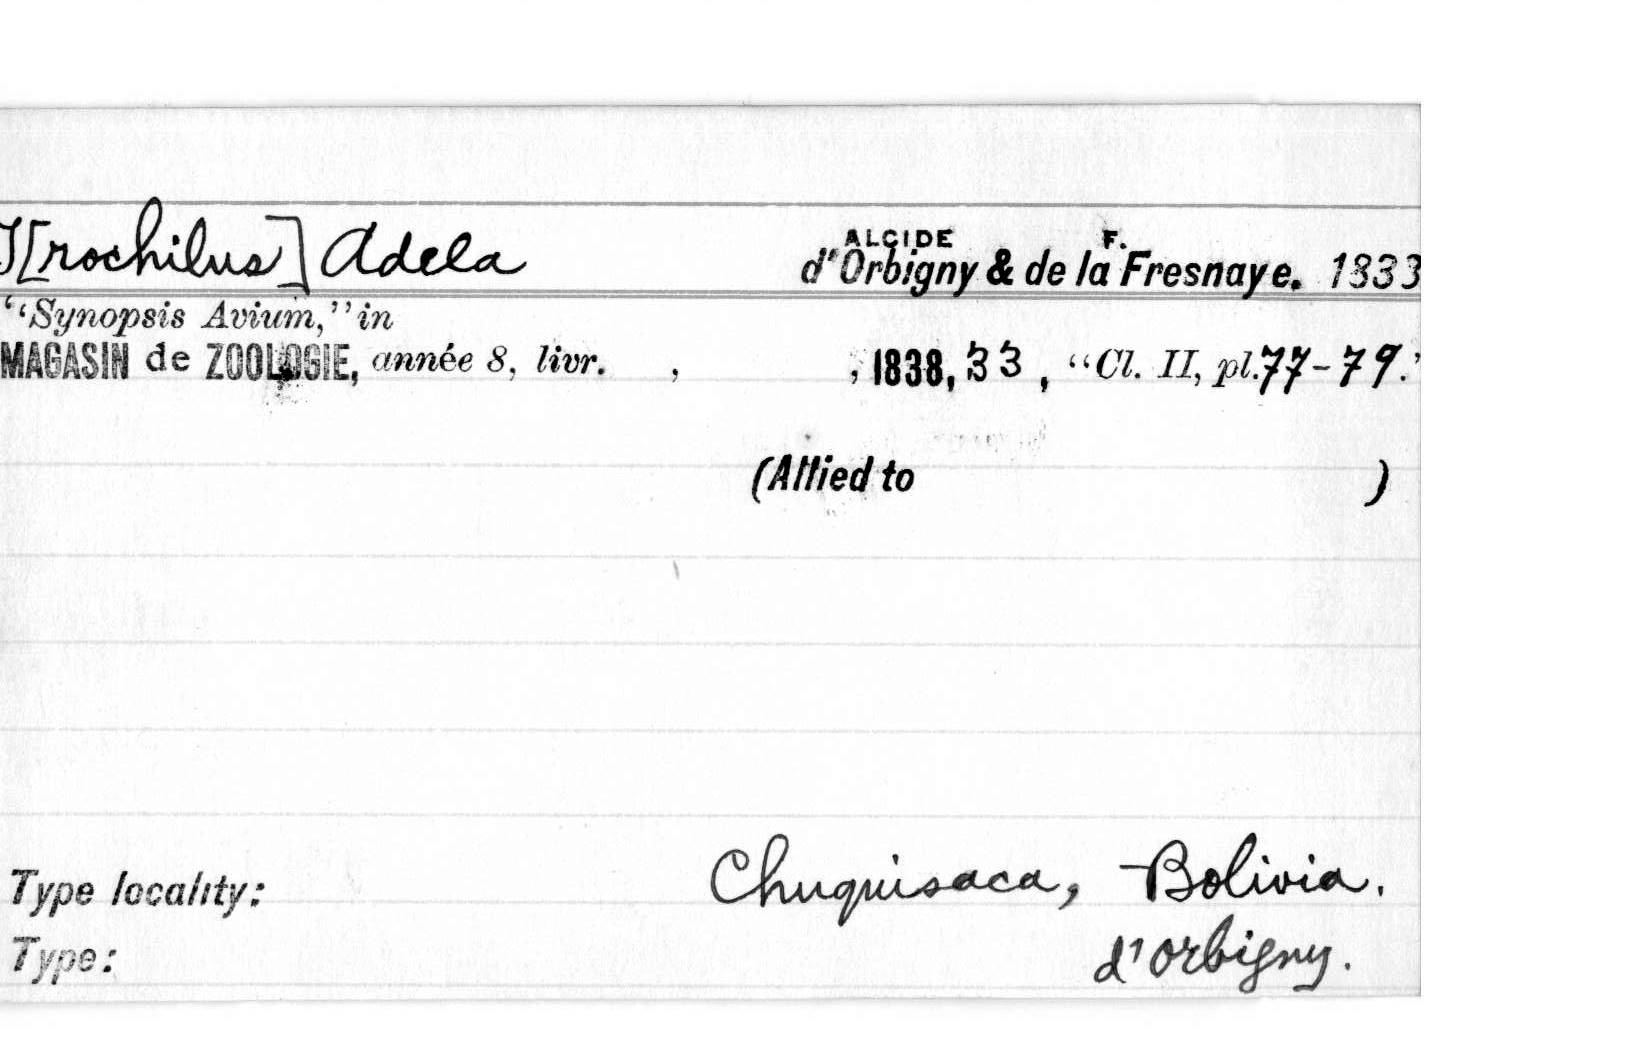 T[rochilus] Adela ALCIDE d'Orbigny & de la F. Fresnaye. 1833
“Synopsis Avium,” in
MAGASIN de ZOOLOGIE, année 8, livr. , , 1838, 33 , “Cl. II, pl. 77-79.”
(Allied to )
Type locality: Chuquisaca, Bolivia.
Type: d'Orbigny.